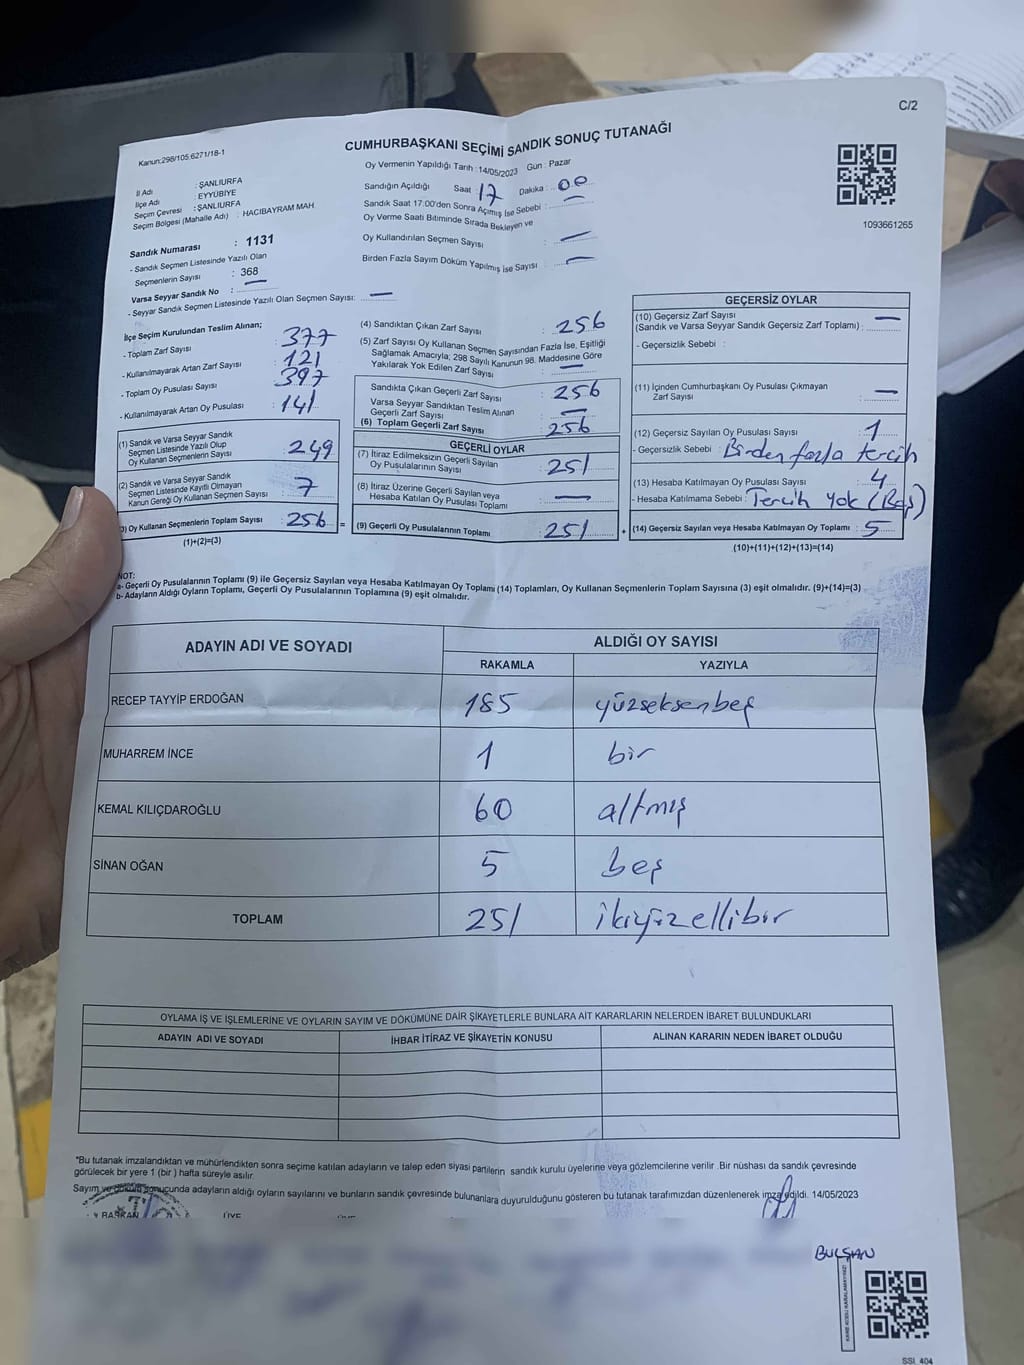 C/2
Kanun:298/105.6271/18-1
CUMHURBAŞKANI SEÇİMİ SANDIK SONUÇ TUTANAĞI
Oy Vermenin Yapıldığı Tarih :14/05/2023 Gün : Pazar
İl Adı : ŞANLIURFA
İlçe Adı : EYYÜBİYE
Seçim Çevresi : ŞANLIURFA
Seçim Bölgesi (Mahalle Adı) : HACIBAYRAM MAH.
Sandığın Açıldığı Saat : 17 Dakika : 00
Sandık Saat 17.00'den Sonra Açımış İse Sebebi : —
Oy Verme Saati Bitiminde Sırada Bekleyen ve
Oy Kullandırılan Seçmen Sayısı : —
Birden Fazla Sayım Döküm Yapılmış İse Sayısı : —
1093661265
Sandık Numarası : 1131
- Sandık Seçmen Listesinde Yazılı Olan
Seçmenlerin Sayısı : 368
Varsa Seyyar Sandık No : —
- Seyyar Sandık Seçmen Listesinde Yazılı Olan Seçmen Sayısı: —
İlçe Seçim Kurulundan Teslim Alınan;
- Toplam Zarf Sayısı : 377
- Kullanılmayarak Artan Zarf Sayısı : 121
- Toplam Oy Pusulası Sayısı : 397
- Kullanılmayarak Artan Oy Pusulası : 141
(1) Sandık ve Varsa Seyyar Sandık
Seçmen Listesinde Yazılı Olup
Oy Kullanan Seçmenlerin Sayısı : 249
(2) Sandık ve Varsa Seyyar Sandık
Seçmen Listesinde Kayıtlı Olmayan
Kanun Gereği Oy Kullanan Seçmen Sayısı : 7
3) Oy Kullanan Seçmenlerin Toplam Sayısı : 256 =
(1)+(2)=(3)
(4) Sandıktan Çıkan Zarf Sayısı : 256
(5) Zarf Sayısı Oy Kullanan Seçmen Sayısından Fazla İse, Eşitliği
Sağlamak Amacıyla; 298 Sayılı Kanunun 98. Maddesine Göre
Yakılarak Yok Edilen Zarf Sayısı : —
Sandıkta Çıkan Geçerli Zarf Sayısı : 256
Varsa Seyyar Sandıktan Teslim Alınan
Geçerli Zarf Sayısı : —
(6) Toplam Geçerli Zarf Sayısı : 256
GEÇERLİ OYLAR
(7) İtiraz Edilmeksizin Geçerli Sayılan
Oy Pusulalarının Sayısı : 251
(8) İtiraz Üzerine Geçerli Sayılan veya
Hesaba Katılan Oy Pusulası Toplamı : —
(9) Geçerli Oy Pusulalarının Toplamı : 251 +
GEÇERSİZ OYLAR
(10) Geçersiz Zarf Sayısı
(Sandık ve Varsa Seyyar Sandık Geçersiz Zarf Toplamı) : —
- Geçersizlik Sebebi :
(11) İçinden Cumhurbaşkanı Oy Pusulası Çıkmayan
Zarf Sayısı : —
(12) Geçersiz Sayılan Oy Pusulası Sayısı : 1
- Geçersizlik Sebebi : Birden fazla tercih
(13) Hesaba Katılmayan Oy Pusulası Sayısı : 4
- Hesaba Katılmama Sebebi : Tercih yok (Boş)
(14) Geçersiz Sayılan veya Hesaba Katılmayan Oy Toplamı : 5
(10)+(11)+(12)+(13)=(14)
NOT:
a- Geçerli Oy Pusulalarının Toplamı (9) ile Geçersiz Sayılan veya Hesaba Katılmayan Oy Toplamı (14) Toplamları, Oy Kullanan Seçmenlerin Toplam Sayısına (3) eşit olmalıdır. (9)+(14)=(3)
b- Adayların Aldığı Oyların Toplamı, Geçerli Oy Pusulalarının Toplamına (9) eşit olmalıdır.
ADAYIN ADI VE SOYADI ALDIĞI OY SAYISI
RAKAMLA YAZIYLA
RECEP TAYYİP ERDOĞAN 185 yüzseksenbeş
MUHARREM İNCE 1 bir
KEMAL KILIÇDAROĞLU 60 altmış
SİNAN OĞAN 5 beş
TOPLAM 251 ikiyüzellibir
OYLAMA İŞ VE İŞLEMLERİNE VE OYLARIN SAYIM VE DÖKÜMÜNE DAİR ŞİKAYETLERLE BUNLARA AİT KARARLARIN NELERDEN İBARET BULUNDUKLARI
ADAYIN ADI VE SOYADI İHBAR İTİRAZ VE ŞİKAYETİN KONUSU ALINAN KARARIN NEDEN İBARET OLDUĞU
*Bu tutanak imzalandıktan ve mühürlendikten sonra seçime katılan adayların ve talep eden siyasi partilerin sandık kurulu üyelerine veya gözlemcilerine verilir .Bir nüshası da sandık çevresinde
görülecek bir yere 1 (bir ) hafta süreyle asılır.
Sayım ve döküm sonucunda adayların aldığı oyların sayılarını ve bunların sandık çevresinde bulunanlara duyurulduğunu gösteren bu tutanak tarafımızdan düzenlenerek imza edildi. 14/05/2023
BAŞKAN ÜYE ÜYE
BULŞAN
SSI 404